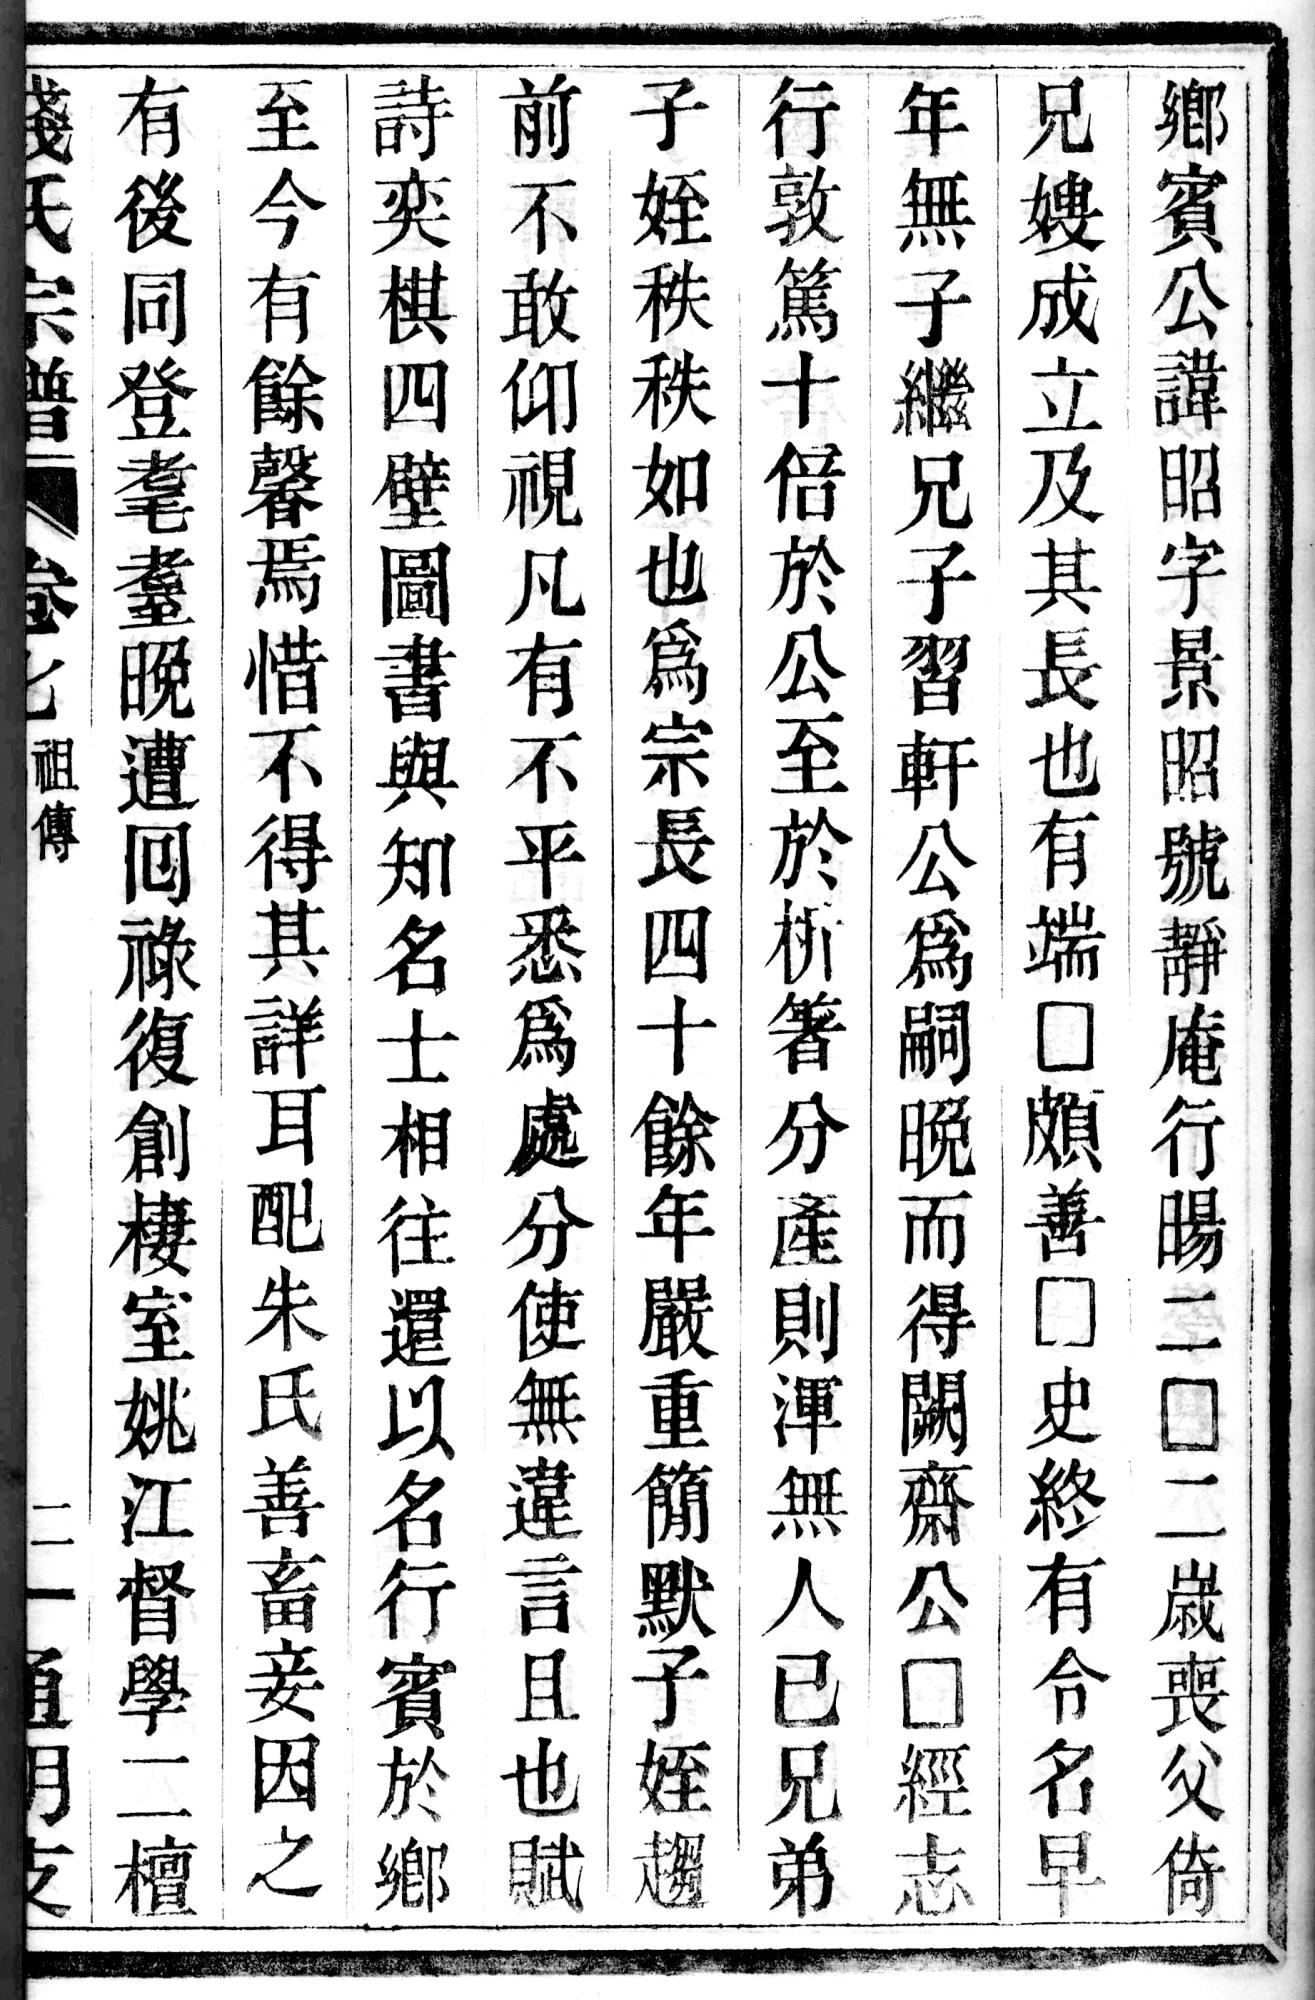 鄉賓公諱昭字景昭號靜庵行暘二□二歲喪父倚
兄嫂成立及其長也有端□頗善□史終有令名早
年無子繼兄子習軒公爲嗣晚而得闕齋公□經志
行敦篤十倍於公至於析箸分產則渾無人已兄弟
子姪秩秩如也爲宗長四十餘年嚴重簡默子姪趨
前不敢仰視凡有不平悉爲處分使無違言且也賦
詩奕棋四壁圖書與知名士相往還以名行賓於鄉
至今有餘馨焉惜不得其詳耳配朱氏善畜妾因之
有後同登耄耋晚遭囘祿復創棲室姚江督學二檀
錢氏宗譜 卷七 祖傳 二一 通明支